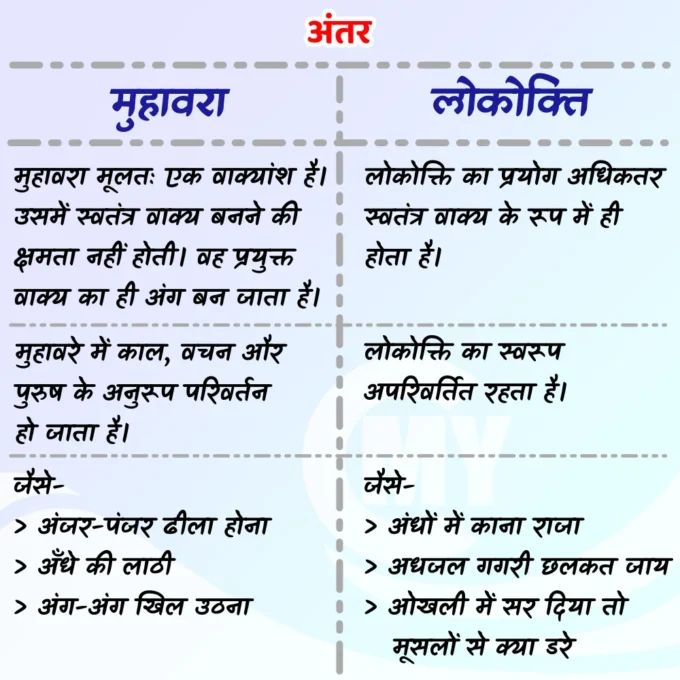 अंतर
मुहावरा
लोकोक्ति
मुहावरा मूलतः एक वाक्यांश है।
उसमें स्वतंत्र वाक्य बनने की
क्षमता नहीं होती। वह प्रयुक्त
वाक्य का ही अंग बन जाता है।
लोकोक्ति का प्रयोग अधिकतर
स्वतंत्र वाक्य के रूप में ही
होता है।
मुहावरे में काल, वचन और
पुरुष के अनुरूप परिवर्तन
हो जाता है।
लोकोक्ति का स्वरूप
अपरिवर्तित रहता है।
जैसे-
> अंजर-पंजर ढीला होना
> अँधे की लाठी
> अंग-अंग खिल उठना
जैसे-
> अंधों में काना राजा
> अधजल गगरी छलकत जाय
> ओखली में सर दिया तो
मूसलों से क्या डरे
MY